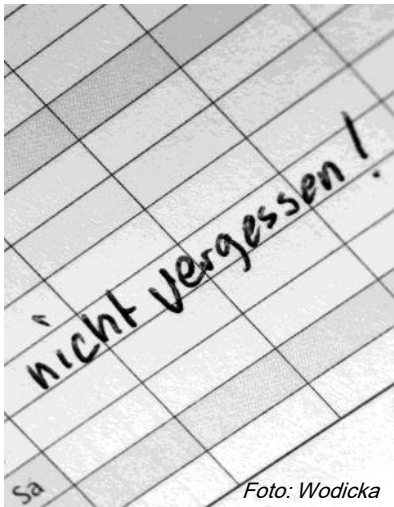 nicht vergessen!
Sa
Foto: Wodicka